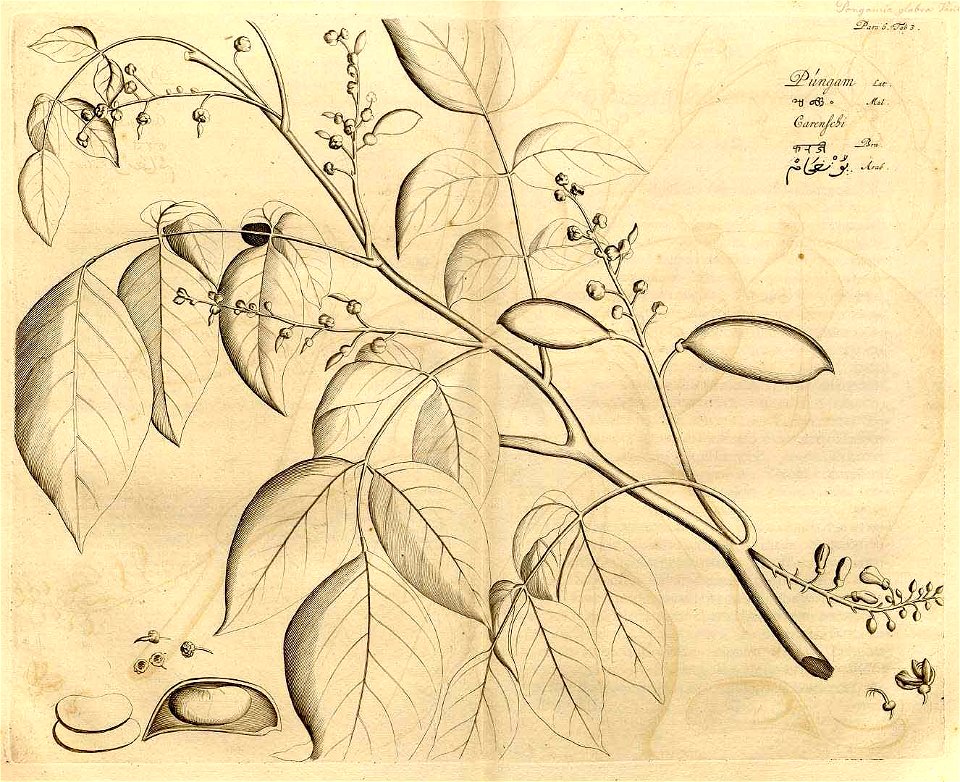 Pongamia glabra Vent
Pars 6. Tab 3.
Púngam Lat.
Mal.
Carenschi
Bra.
Arab.